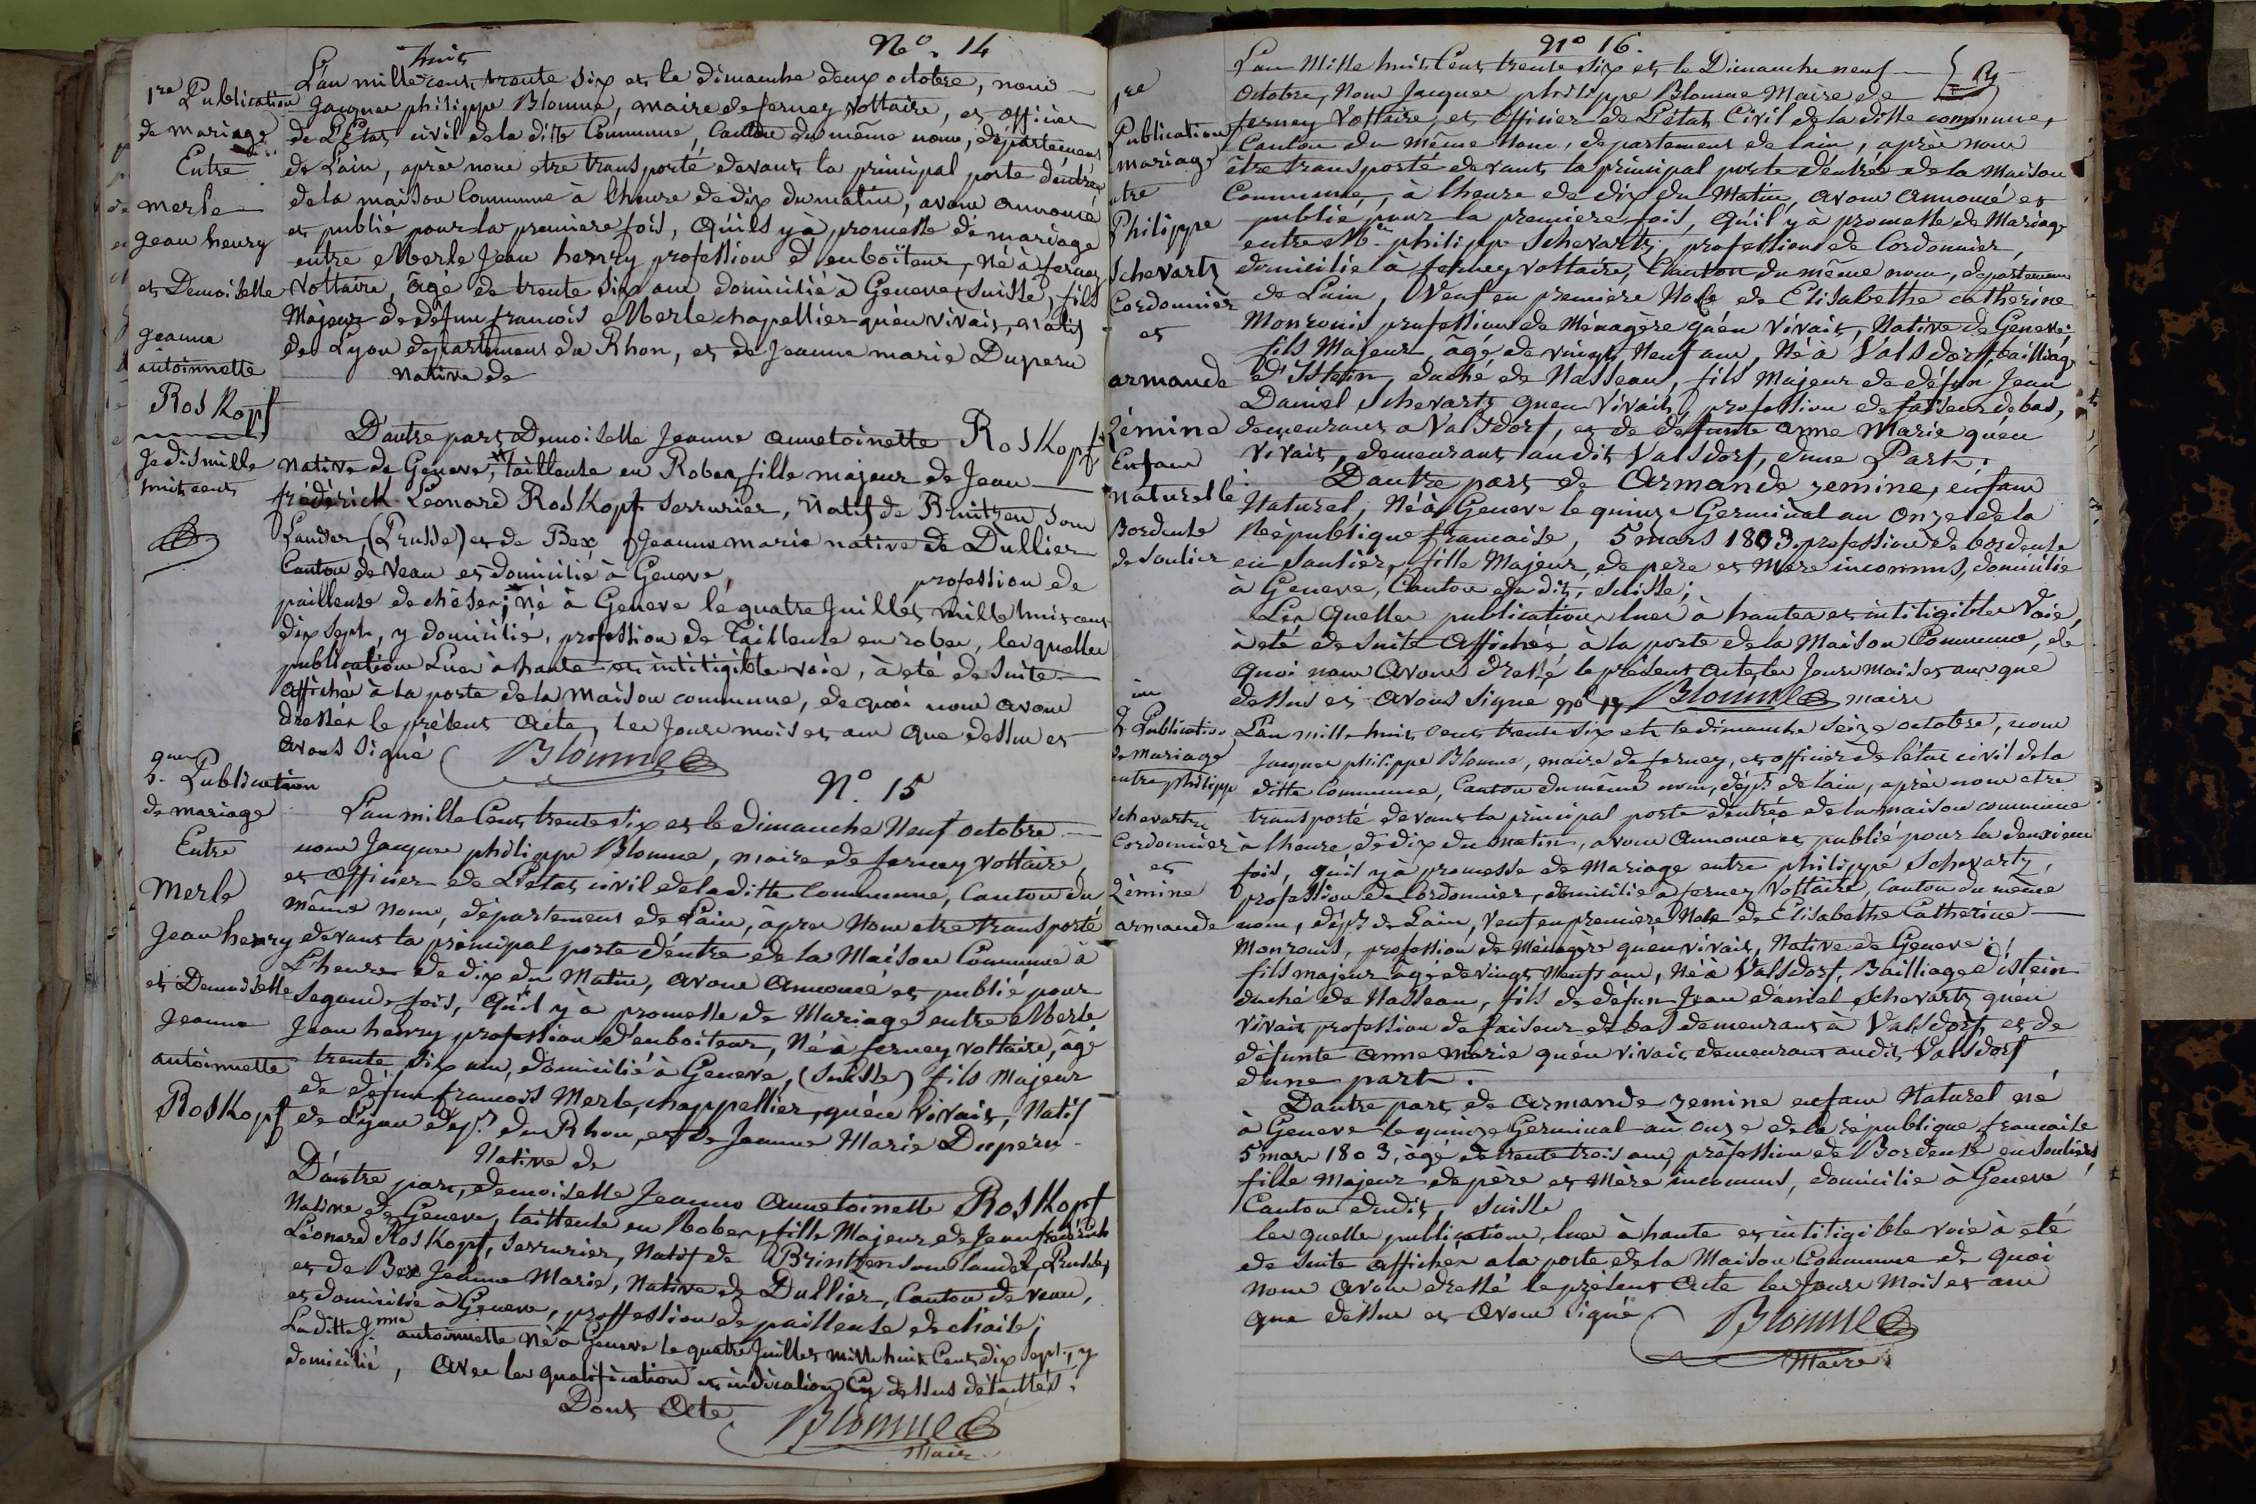 N.o 14
1re Publication
de mariage
Entre
merle
jean henry
et Demoiselle
jeanne
antoinnette
Roskopf
je dis mille
huit cent
huit
L'an mille cent trente six et le dimanche deux octobre, nous
Jacques philippe Blonne, maire de ferney voltaire, et officier
de L'Etat civil de la ditte Commune, Canton du même nom, département
de L'ain, après nous etre transporté devant la principal porte d'entrée
de la maison Commune à lheure de dix du matin, avons annoncé
et publié pour la premiere fois, Qu'ils y à promesse de mariage
entre Merle Jean henry profession d'enboîteur, Né à ferney
Voltaire, âgé de trente six ans domicilié à Geneve (Suisse) fils
Majeur de défun francois Merle chapellier quèn vivait, natif
de Lyon département du Rhon, et de Jeanne marie Duperu
native de
D'autre part Demoiselle Jeanne annetoinette Roskopf
native de Geneve, tailleuse en Robes, fille majeur de Jean
frédérick Léonard Roskopf serrurier, natif de Brintzen Sous
Lander (Prusse) et de Bex Jeanne marie native de Dullier
Canton de Veau et domicilié à Geneve, profession de
pailleuse de chèses; Né à Geneve le quatre Juillet mille huit cent
dix sept, y domicilié, profession de Tailleuse en robes, les quelles
publications Lues à haute et intitigible voie, à eté de suite
affichés à la porte de la maison commune, de quoi nous avons
dressés le présent acte, les jours mois et an que dessus et
avons signé Blonne
N.o 15
2. Publication
de mariage
Entre
Merle
Jean henry
et Demoiselle
jeanne
antoinnette
Roskopf
L'an mille Cent trente six et le dimanche Neuf octobre
nous Jacques philippe Blonne, maire de ferney voltaire,
et officier de L'etat civil de la ditte Commune, Canton du
même nom, département de L'ain, àpres Nous etre transporté
devant la principal porte d'entre de la Maison Commune à
L'heure de dix du Matin, avons Annoncé et publié pour
segonde fois, Qu'il y à promesse de Mariage entre Merle
Jean henry profession d'enboiteur, Né à ferney voltaire, âgé
trente six ans, domicilié à Geneve, (Suisse) fils Majeur
de défun francois Merle, chappellier, quèn vivais, Natif
de Lyon dépt. du Rhon, et de Jeanne Marie Duperu
Native de
D'autre part, demoiselle Jeanne Annetoinette Roskopf
Native de Geneve, tailleuse en Robes, fille Majeur de Jean frédérick
Léonard Roskopf, serrurier, Natif de Brintzen sous lander, Prusse,
et de Bex Jeanne Marie, Native de Dullier, Canton de veau,
et domicilié à Geneve, proffession de pailleuse de chaise;
La ditte Jnne antoinnette Né à Geneve le quatre Juillet mille huit Cent dix sept, y
domicilié, Avec les qualifications et indications Cy dessus détaillés.
Dont Acte Blonne
Maire
N.o 16.
1re
Publication
mariage
ntre
Philippe
Schevartz
Cordonnier
et
armande
Zémine
Enfant
naturelle
Bordeuse
de Soulier
L'an Mille huit Cent trente six et le Dimanche neuf
Octobre, Nous Jacques philippe Blonne Maire de
ferney Voltaire, et officier de L'etat Civil de la ditte commune,
Canton du même Nom, departement de lain, après nous
être transporté devant la principal porte dentrée de la Maison
Commune, à lheure de dix du Matin, avons annoncé et
publié pour la premiere fois, Qu'il y à promesse de Mariage
entre Mr. philippe Schevartz, profession de Cordonnier,
domicilié à ferney voltaire, Canton du même nom, departement
de Lain, Veuf en première Noce de Elisabethe catherine
Monrouis profession de Ménagère quèn vivait, Native de Geneve;
fils Majeur âgé de vingt Neuf ans, Né à Valsdorf, bailliage
d'Istein, duché de Nasseau, fils Majeur de défun Jean
Daniel Schevartz quèn vivait, profession de faiseur de bas,
demeurant a Valsdorf, et de défunte anne Marie quèn
vivait, demeurant audit Valsdorf, dune Part.
Dautre part de Armande zemine, enfant
Naturel, Né à Geneve le quinze Germinal an Onze de la
Réepublique francaise, 5 mars 1803, profession de bordeuse
en soulier, fille Majeur, de pere et Mere inconnus, domicilié
à Geneve, Canton du dit, suisse;
Les Quelles publications lues à hautes et intitigibles Voie,
à eté de suite Affichés à la porte de la Maison Commune, de
quoi nous Avons dressé le présent acte, les jours mois et an que
dessus et avons signé Blonne maire
No 17
2. Publication
de mariage
entre philippe
schevartz
Cordonnier
et
Zèmine
armande
L'an mille huit cent trente six et le dimanche seize octobre, nous
Jacques philippe Blonne, maire de ferney, et officier de létat civil de la
ditte Commune, Canton du même nom, dépt. de lain, après nous etre
transporté devant la principal porte d'entrée de la maison commune
à lheure de dix du matin, avons annoncé et publié pour la deuxieme
fois, quil y à promesse de Mariage entre philippe Schevartz,
profession de Cordonnier, domicilié a ferney Voltaire, Canton du même
nom, dépt. de Lain, Veuf en premiere Noce de Elisabethe Catherine
Monrouis, profession de Ménagère quèn vivait, Native de Geneve;
fils majeur âgé de vingt Neuf ans, Né à Valsdorf, Bailliage d'istein
duché de Nasseau, fils de défun Jean daniel Schevartz quèn
vivait profession de faiseur de bas demeurant à Valsdorf, et de
défunte Anne Marie quèn vivait demeurant audit Valsdorf
dune part.
Dautre part, de Armande zemine enfant Naturel né
à Geneve le quinze Germinal an onze de la république francaise
5 mars 1803, âgé de trente trois ans, profession de Bordeuse en souliers
fille Majeur de père et Mère inconnus, domicilié à Geneve
Canton dudit, Suisse
les quelles publications, lues à haute et intitigible voie à eté
de suite affichés a la porte de la Maison Commune de quoi
nous avons dressé le présent Acte les Jours Mois et an
que dessus et avons signé Blonne
Maire